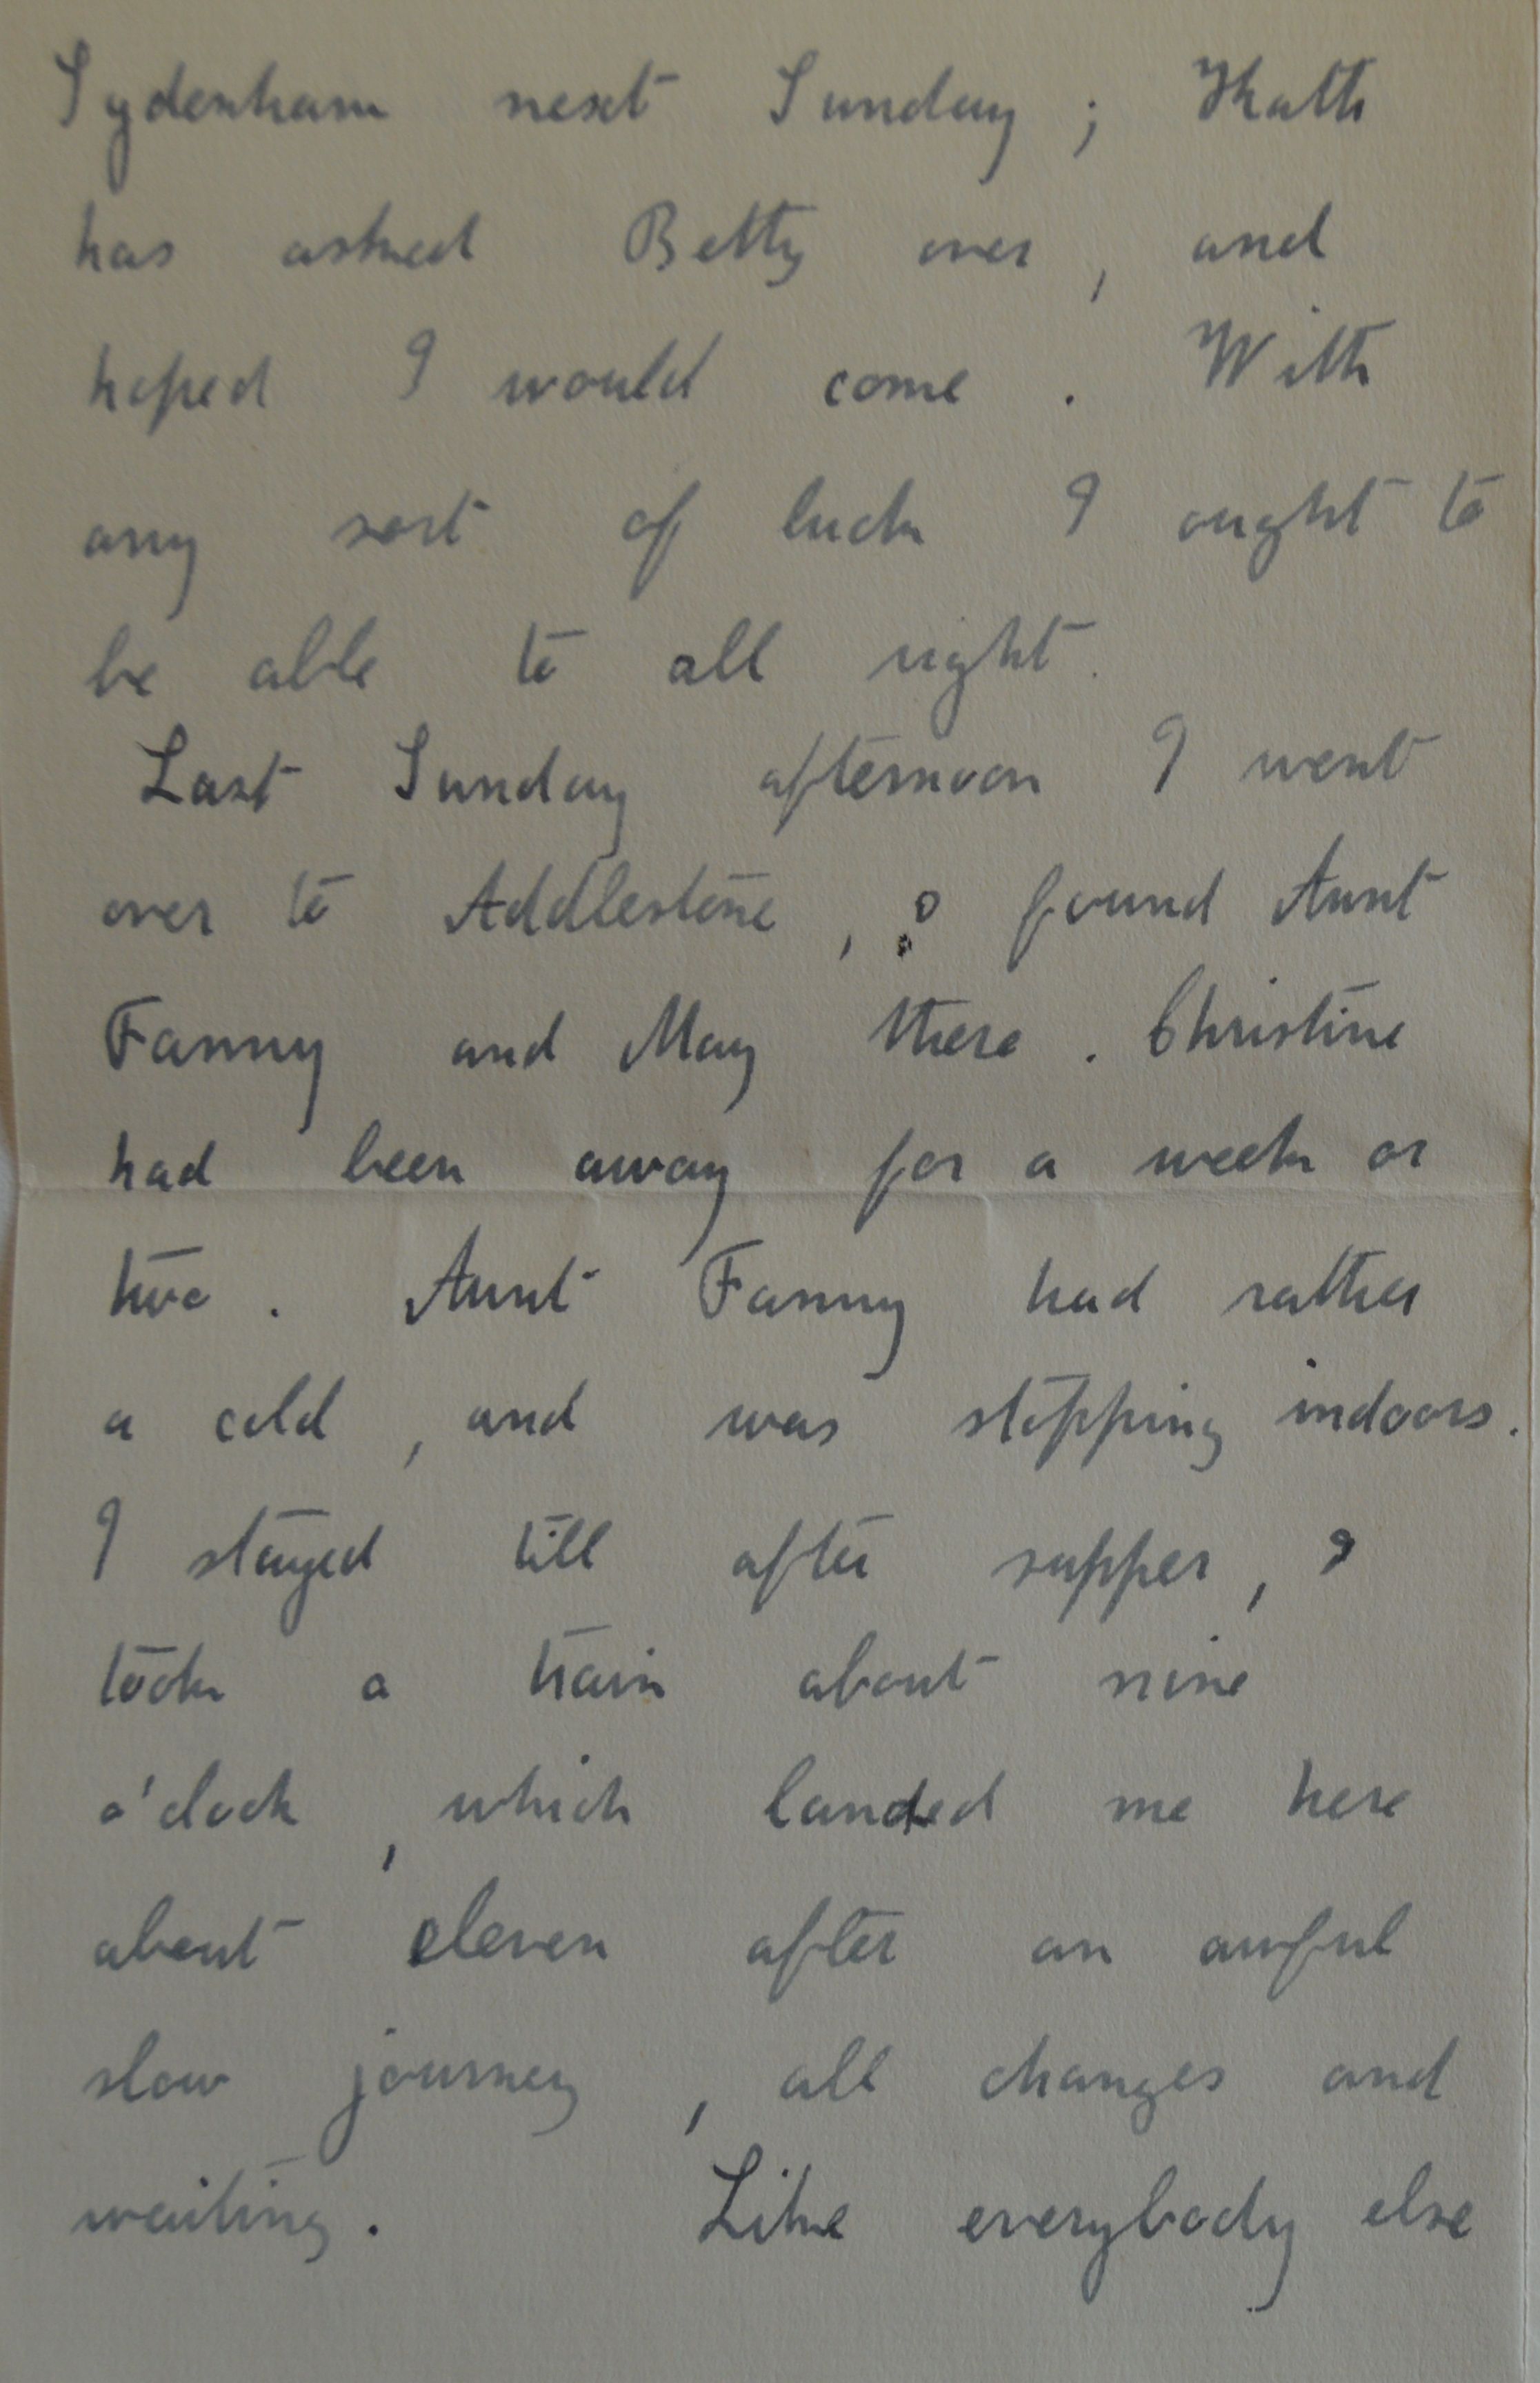 Sydenham next Sunday ; Kath
has asked Betty over , and
hoped I would come . With
any sort of luck I ought to
be able to all right .
Last Sunday afternoon I went
over to Addlestone , & found Aunt
Fanny and May there . Christine
had been away for a week or
two . Aunt Fanny had rather
a cold , and was stopping indoors .
I stayed till after supper , &
took a train about nine
o'clock , which landed me here
about eleven after an awful
slow journey , all changes and
waiting . Like everybody else